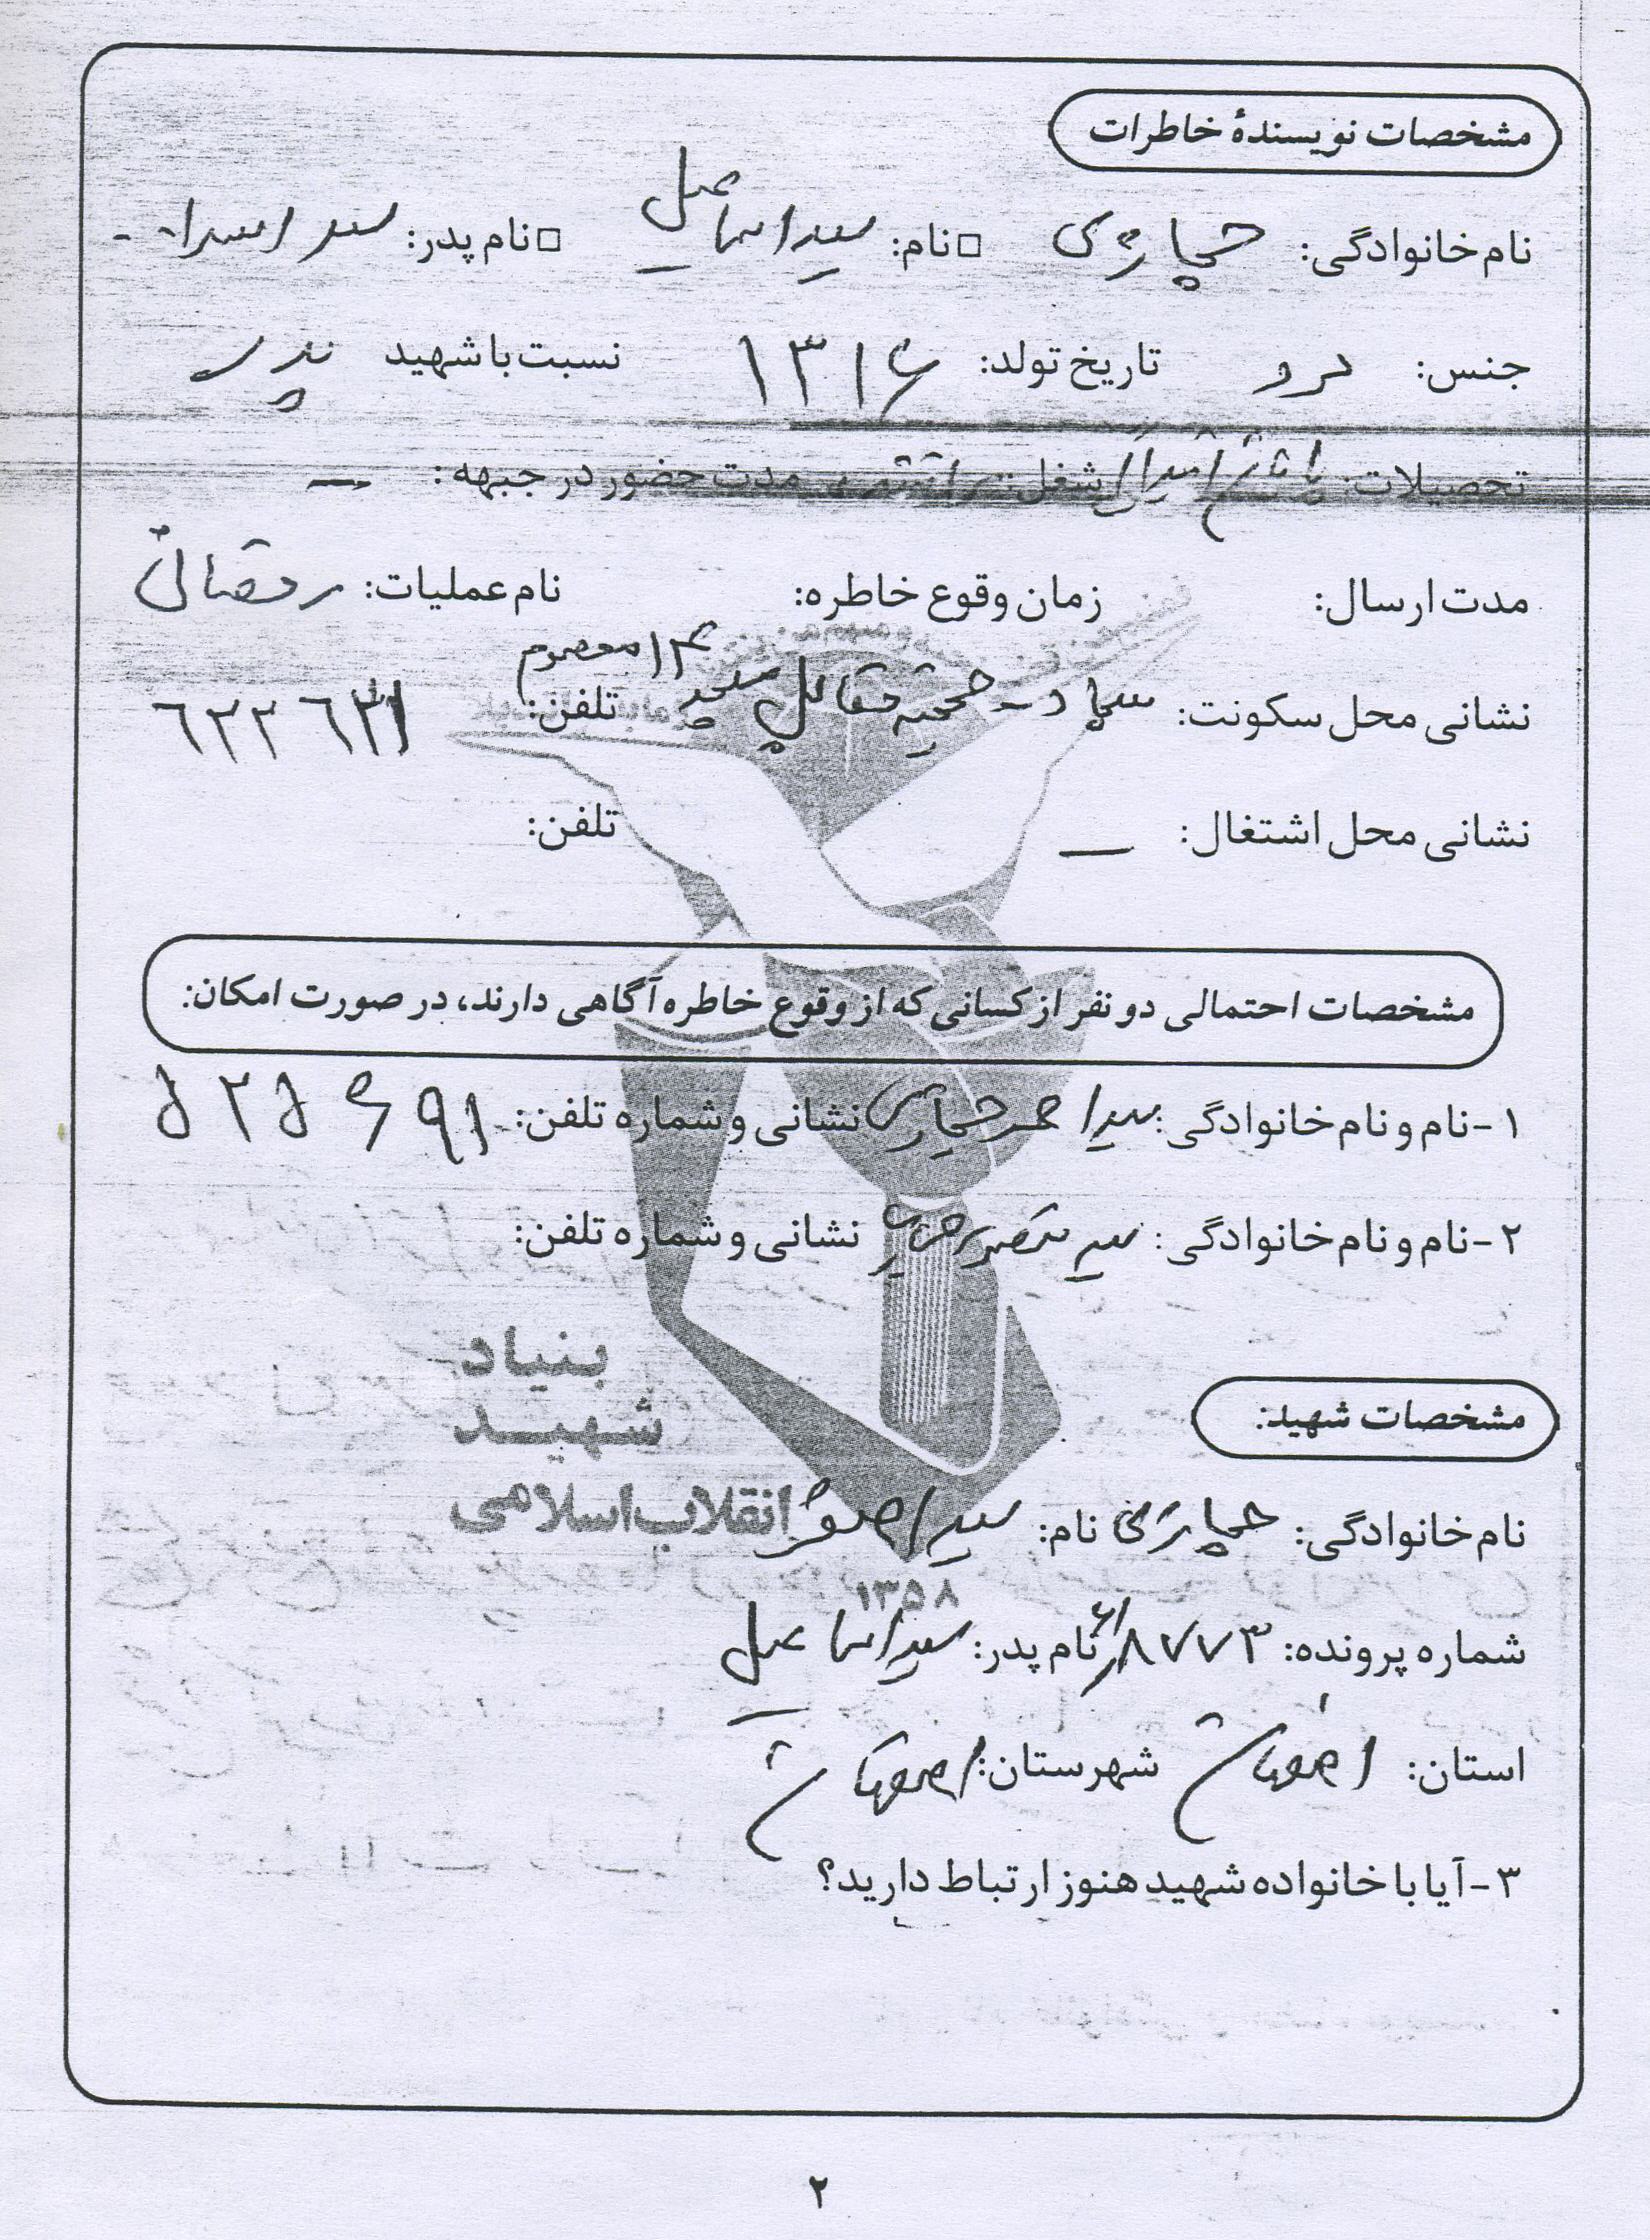 مشخصات نویسندهٔ خاطرات
نام خانوادگی: حجازی □نام: سید اسماعیل □نام پدر: سید اسداله
جنس: مرد تاریخ تولد: ۱۳۱۶ نسبت با شهید پدر
تحصیلات: شغل: مدت حضور در جبهه: —
مدت ارسال: زمان وقوع خاطره: نام عملیات: رمضان
نشانی محل سکونت: سجاد - مقابل مسجد ۱۴ معصوم تلفن: ۶۲۲۶۳۱
نشانی محل اشتغال: — تلفن:
مشخصات احتمالی دو نفر از کسانی که از وقوع خاطره آگاهی دارند، در صورت امکان:
۱-نام و نام خانوادگی: سید احمد حجازی نشانی و شماره تلفن: ۵۲۵۶۹۱
۲-نام و نام خانوادگی: سید نشانی و شماره تلفن:
بنیاد
شهید
انقلاب اسلامی
۱۳۵۸
مشخصات شهید:
نام خانوادگی: حجازی نام: سید اصغر
شماره پرونده: ۸۷۷۳ نام پدر: سید اسماعیل
استان: اصفهان شهرستان: اصفهان
۳-آیا با خانواده شهید هنوز ارتباط دارید؟
۲